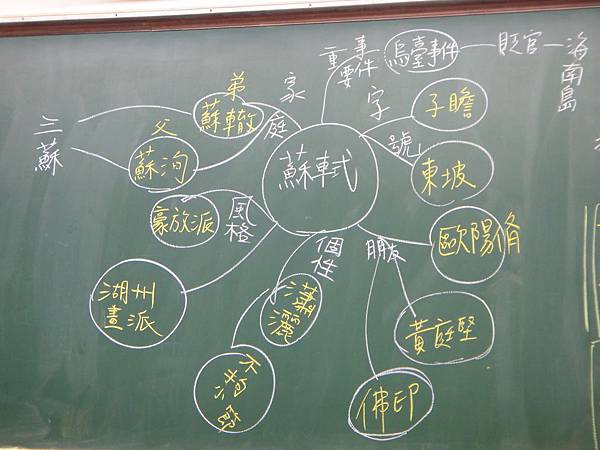 蘇軾
重要
事件
烏臺事件
貶官
海南島
字
子瞻
號
東坡
朋友
歐陽脩
黃庭堅
佛印
個性
瀟灑
不拘小節
風格
豪放派
湖州
畫派
家庭
弟
蘇轍
父
蘇洵
三蘇